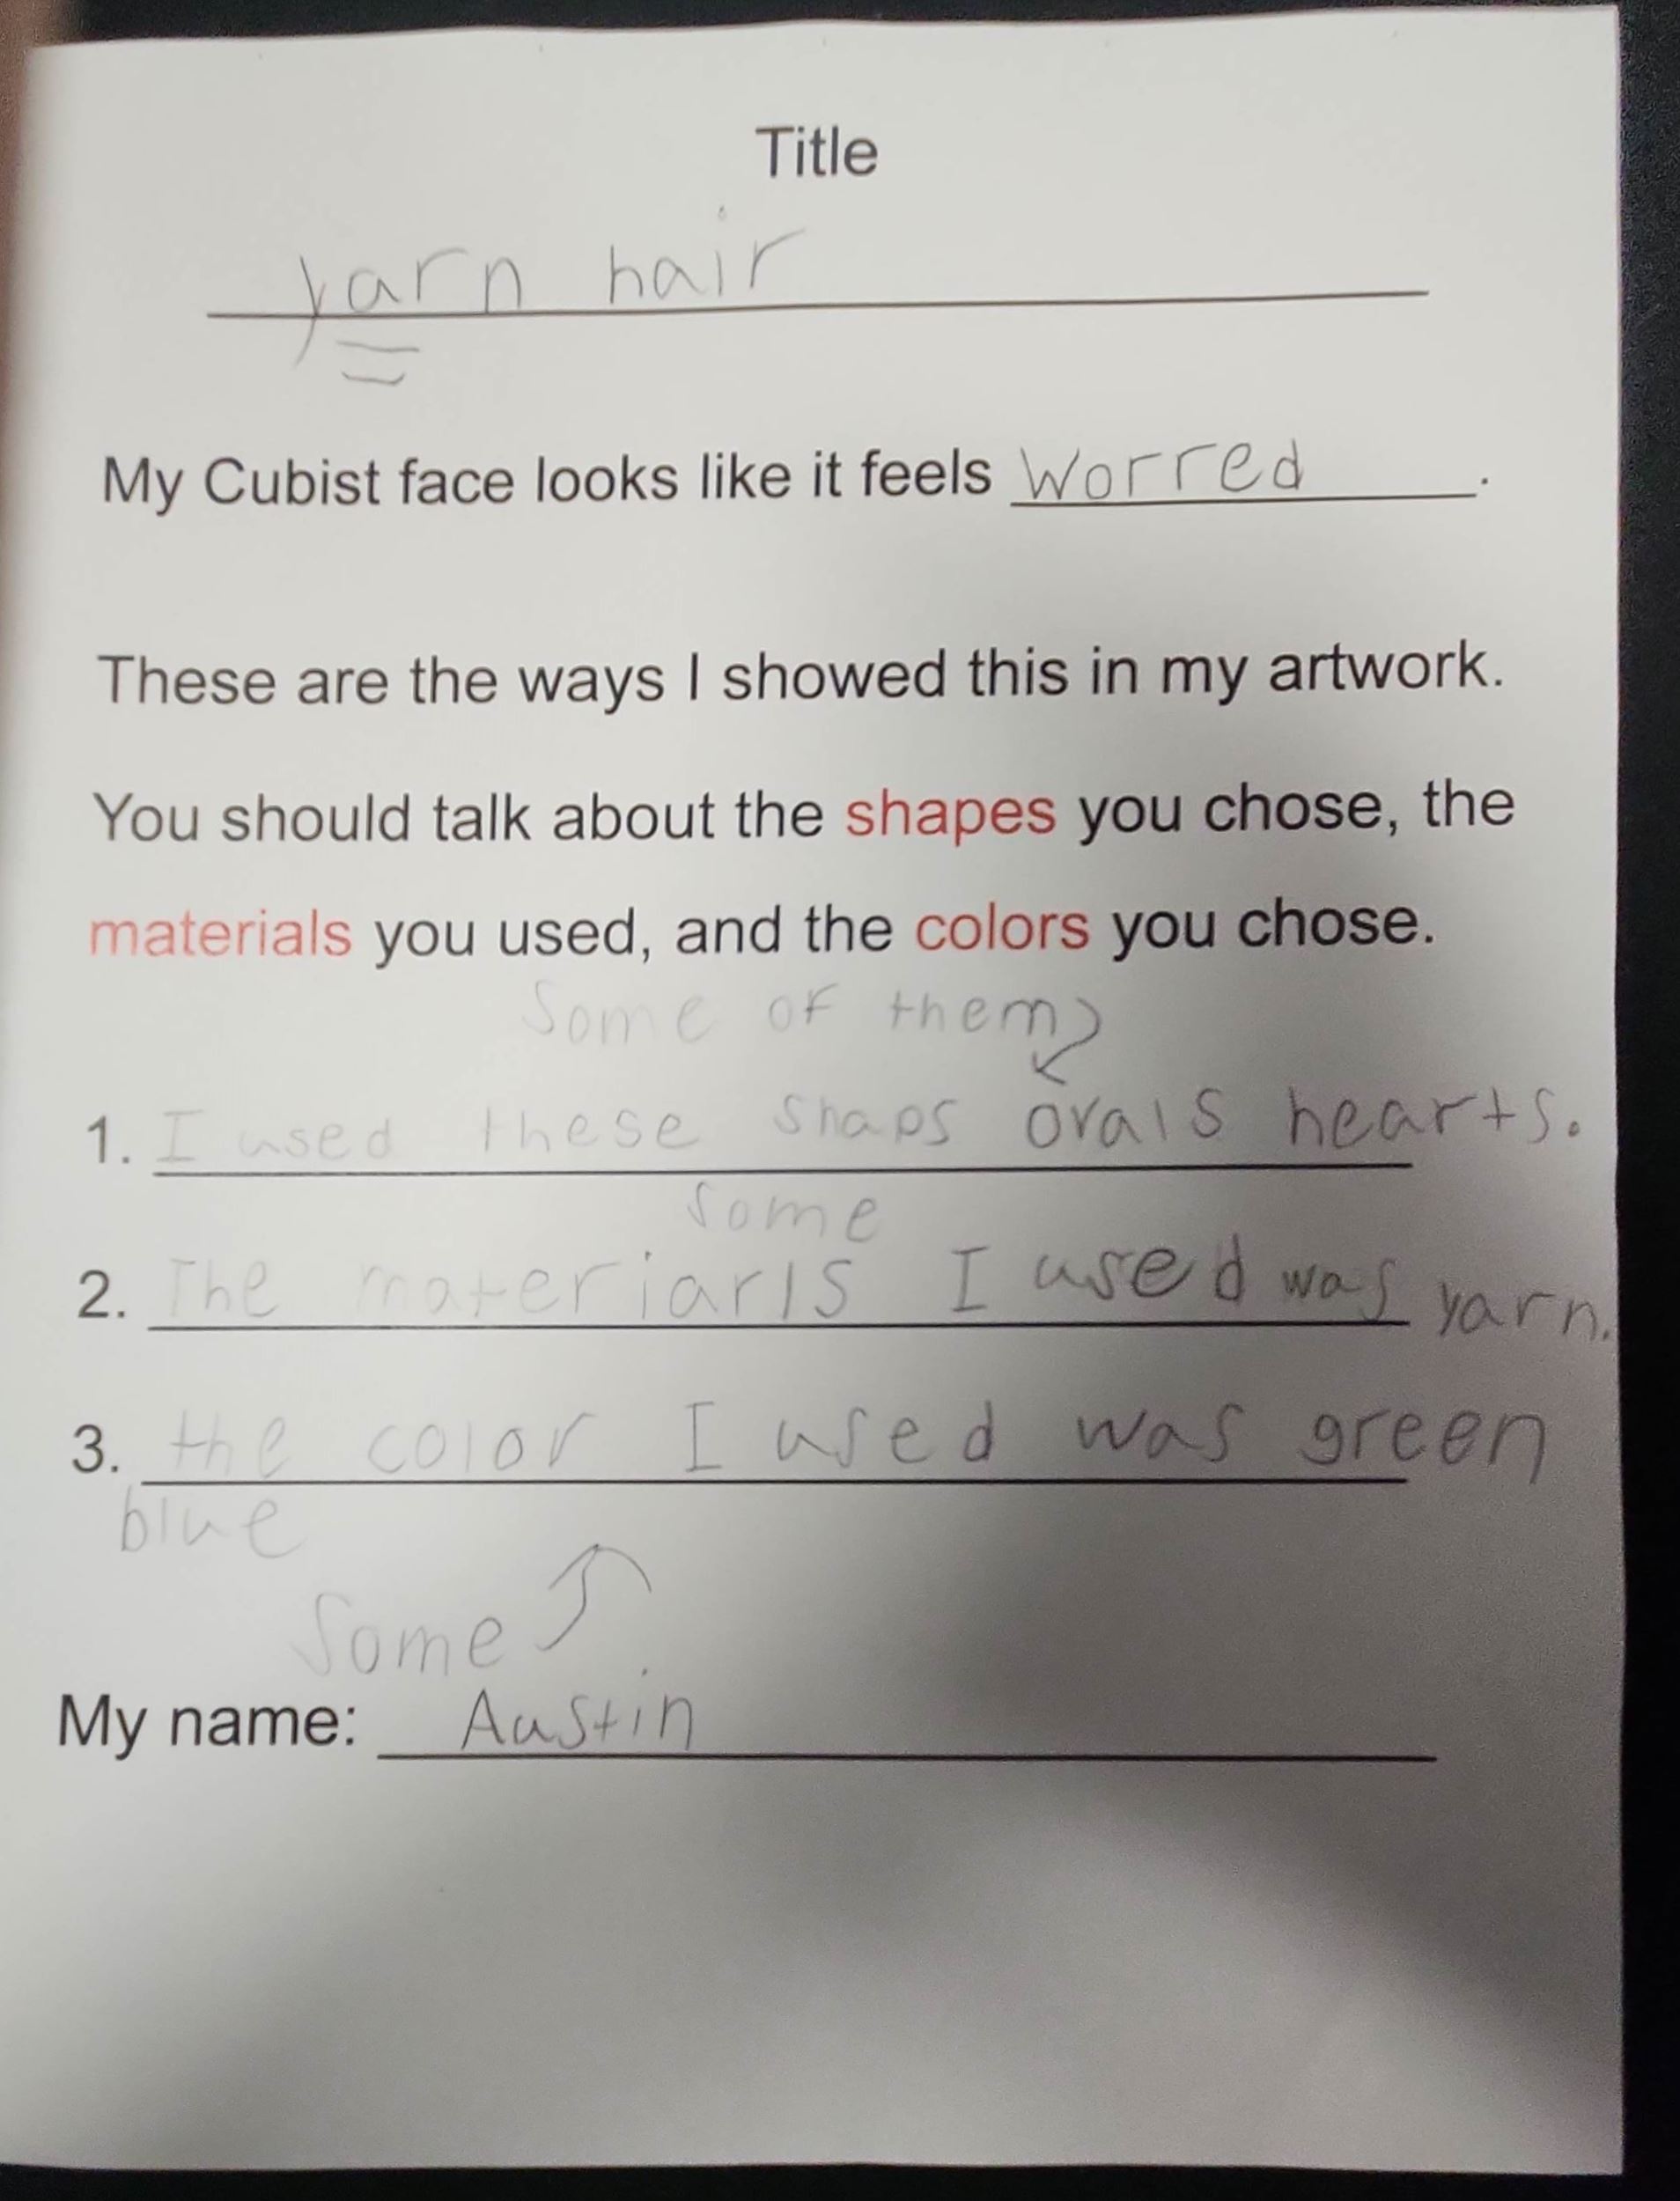 Title
yarn hair
My Cubist face looks like it feels worred.
These are the ways I showed this in my artwork.
You should talk about the shapes you chose, the
materials you used, and the colors you chose.
Some of them
1. I used these shaps ovals hearts.
Some
2. The materiarls I used was yarn.
3. the color I used was green
blue
Some
My name: Austin